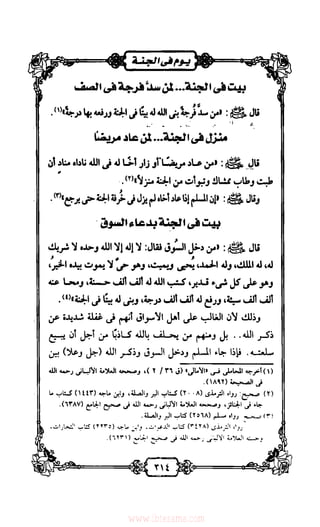 يوم فى الجنة
بيت فى الجنة...لمن سدَّ فرجة فى الصف
قال ﷺ : «من سدَّ فُرجة بنى الله له بيتًا فى الجنة ورفعه بها درجة»(١).
منزل فى الجنة...لمن عاد مريضًا
قال ﷺ : «من عاد مريضًا أو زار أخًا له فى الله ناداه منادٍ أن
طبت وطاب ممشاك وتبوأت من الجنة منزلاً»(٢).
وقال ﷺ : «إن المسلم إذا عاد أخاه لم يزل فى خُرفة الجنة حتى يرجع»(٣).
بيت فى الجنة بدعاء السوق
قال ﷺ : «من دخل السُّوق فقال: لا إله إلا الله وحده لا شريك
له، له الملك، وله الحمد، يُحيى ويميت، وهو حىٌّ لا يموت بيده الخير،
وهو على كل شىء قدير، كتب الله له ألف ألف حسنة، ومحا عنه
ألف ألف سيئة، ورفع له ألف ألف درجة، وبنى له بيتًا فى الجنة»(٤).
وذلك لأن الغالب على أهل الأسواق أنهم فى غفلة شديدة عن
ذكر الله.. بل ومنهم من يحلف بالله كاذبًا من أجل أن يبيع
سلعته. فإذا جاء المسلم ودخل السوق وذكر الله (جل وعلا) بين
(١) أخرجه المحاملى فى «الأمالى» (ق ٣٦ / ٢)، وصححه العلامة الألبانى رحمه الله
فى الصحيحة (١٨٩٢)
(٢) صحيح: رواه الترمذى (٢٠٠٨) كتاب البر والصلة، وابن ماجه (١٤٤٣) كتاب ما
جاء فى الجنائز، وصححه العلامة الألبانى رحمه الله فى صحيح الجامع (٦٣٨٧).
(٣) صحيح: رواه مسلم (٢٥٦٨) كتاب البر والصلة.
رواه الترمذى (٣٤٢٨) كتاب الدعوات، وابن ماجه (٢٢٣٥) كتاب التجارات،
وحسنه العلامة الألبانى رحمه الله فى صحيح الجامع (٦٢٣١).
٣١٤